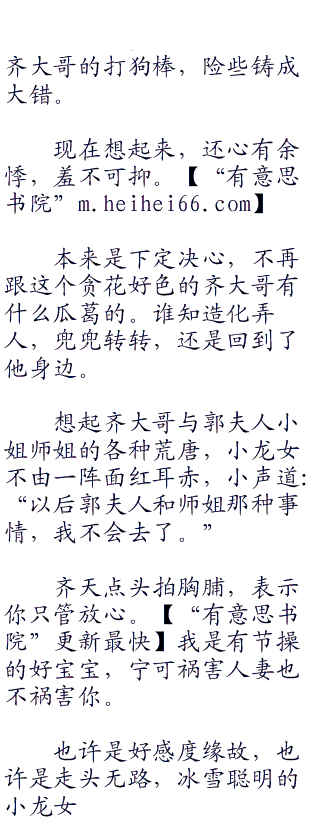 齐大哥的打狗棒，险些铸成
大错。
现在想起来，还心有余
悸，羞不可抑。【“有意思
书院”m.heihei66.com】
本来是下定决心，不再
跟这个贪花好色的齐大哥有
什么瓜葛的。谁知造化弄
人，兜兜转转，还是回到了
他身边。
想起齐大哥与郭夫人小
姐师姐的各种荒唐，小龙女
不由一阵面红耳赤，小声道：
“以后郭夫人和师姐那种事
情，我不会去了。”
齐天点头拍胸脯，表示
你只管放心。【“有意思书
院”更新最快】我是有节操
的好宝宝，宁可祸害人妻也
不祸害你。
也许是好感度缘故，也
许是走头无路，冰雪聪明的
小龙女